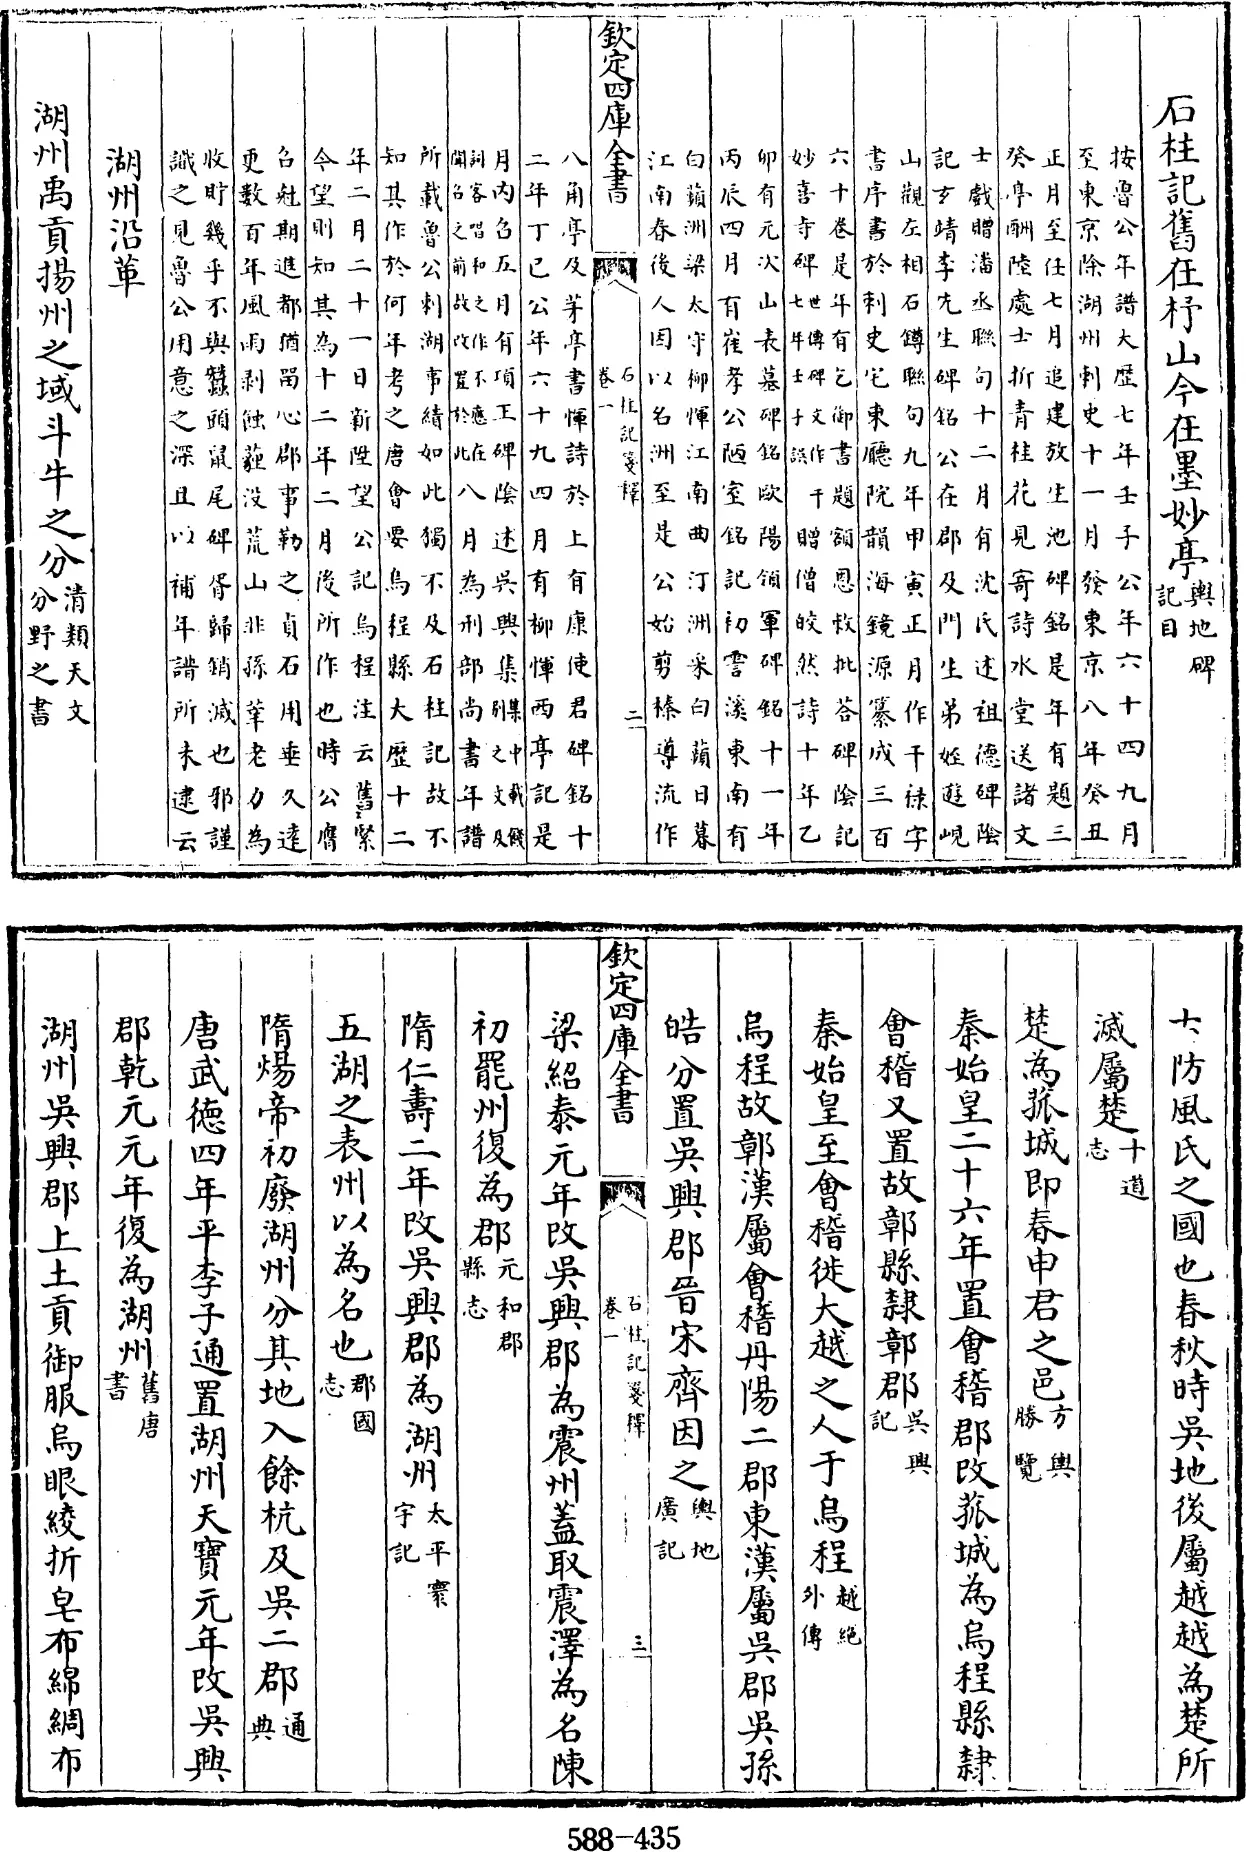 石柱記舊在杼山今在墨妙亭輿地碑
記目
按魯公年譜大歷七年壬子公年六十四九月
至東京除湖州刺史十一月發東京八年癸丑
正月至任七月追建放生池碑銘是年有題三
癸亭酬陸處士折青桂花見寄詩水堂送諸文
士戲贈潘丞聯句十二月有沈氏述祖德碑陰
記玄靖李先生碑銘公在郡及門生弟姪遊峴
山觀左相石罇聯句九年甲寅正月作干祿字
書序書於刺史宅東廳院韻海鏡源纂成三百
六十卷是年有乞御書題額恩敕批荅碑陰記
妙喜寺碑世傳碑文作于七年壬子誤贈僧皎然詩十年乙
卯有元次山表墓碑銘歐陽領軍碑銘十一年
丙辰四月有崔孝公陋室銘記初霅溪東南有
白蘋洲梁太守柳惲江南曲汀洲采白蘋日暮
江南春後人因以名洲至是公始剪榛導流作
欽定四庫全書
石柱記箋釋
卷一
二
八角亭及茅亭書惲詩於上有康使君碑銘十
二年丁巳公年六十九四月有柳惲西亭記是
月內召五月有項王碑陰述吳興集集中載餞別之文及
詞客唱和之作不應在聞召之前故改置於此八月為刑部尚書年譜
所載魯公刺湖事績如此獨不及石柱記故不
知其作於何年考之唐會要烏程縣大歷十二
年二月二十一日新陞望公記烏程注云舊緊
今望則知其為十二年二月後所作也時公膺
召尅期進都猶畱心郡事勒之貞石用垂久遠
更數百年風雨剥蝕薶没荒山非孫莘老力為
收貯幾乎不與蠶頭鼠尾碑胥歸銷滅也邪謹
識之見魯公用意之深且以補年譜所未逮云
湖州沿革
湖州禹貢揚州之域斗牛之分清類天文
分野之書
古防風氏之國也春秋時吳地後屬越越為楚所
滅屬楚十道
志
楚為菰城即春申君之邑方輿
勝覽
秦始皇二十六年置會稽郡改菰城為烏程縣隸
會稽又置故鄣縣隸鄣郡吳興
記
秦始皇至會稽徙大越之人于烏程越絕
外傳
烏程故鄣漢屬會稽丹陽二郡東漢屬吳郡吳孫
皓分置吳興郡晉宋齊因之輿地
廣記
欽定四庫全書
石柱記箋釋
卷一
三
梁紹泰元年改吳興郡為震州蓋取震澤為名陳
初罷州復為郡元和郡
縣志
隋仁壽二年改吳興郡為湖州太平寰
宇記
五湖之表州以為名也郡國
志
隋煬帝初廢湖州分其地入餘杭及吳二郡通
典
唐武德四年平李子通置湖州天寶元年改吳興
郡乾元元年復為湖州舊唐
書
湖州吳興郡上土貢御服烏眼綾折皂布綿綢布
588-435